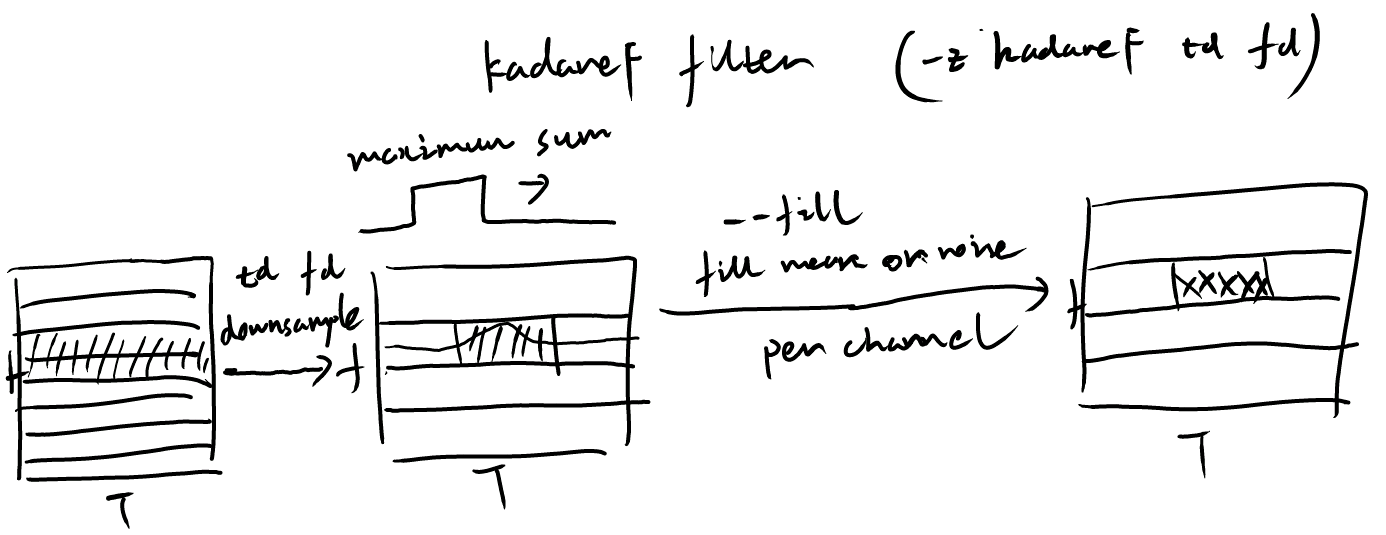 kadaneF filter (-z kadaneF td fd)
maximum sum
td fd
downsample
--fill
fill mean or noise
per channel
f
T
f
T
f
T